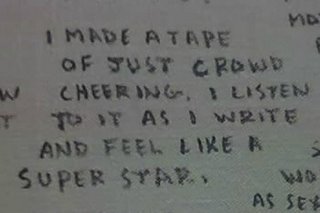 I MADE A TAPE
OF JUST CROWD
CHEERING. I LISTEN
TO IT AS I WRITE
AND FEEL LIKE A
SUPER STAR.
AS